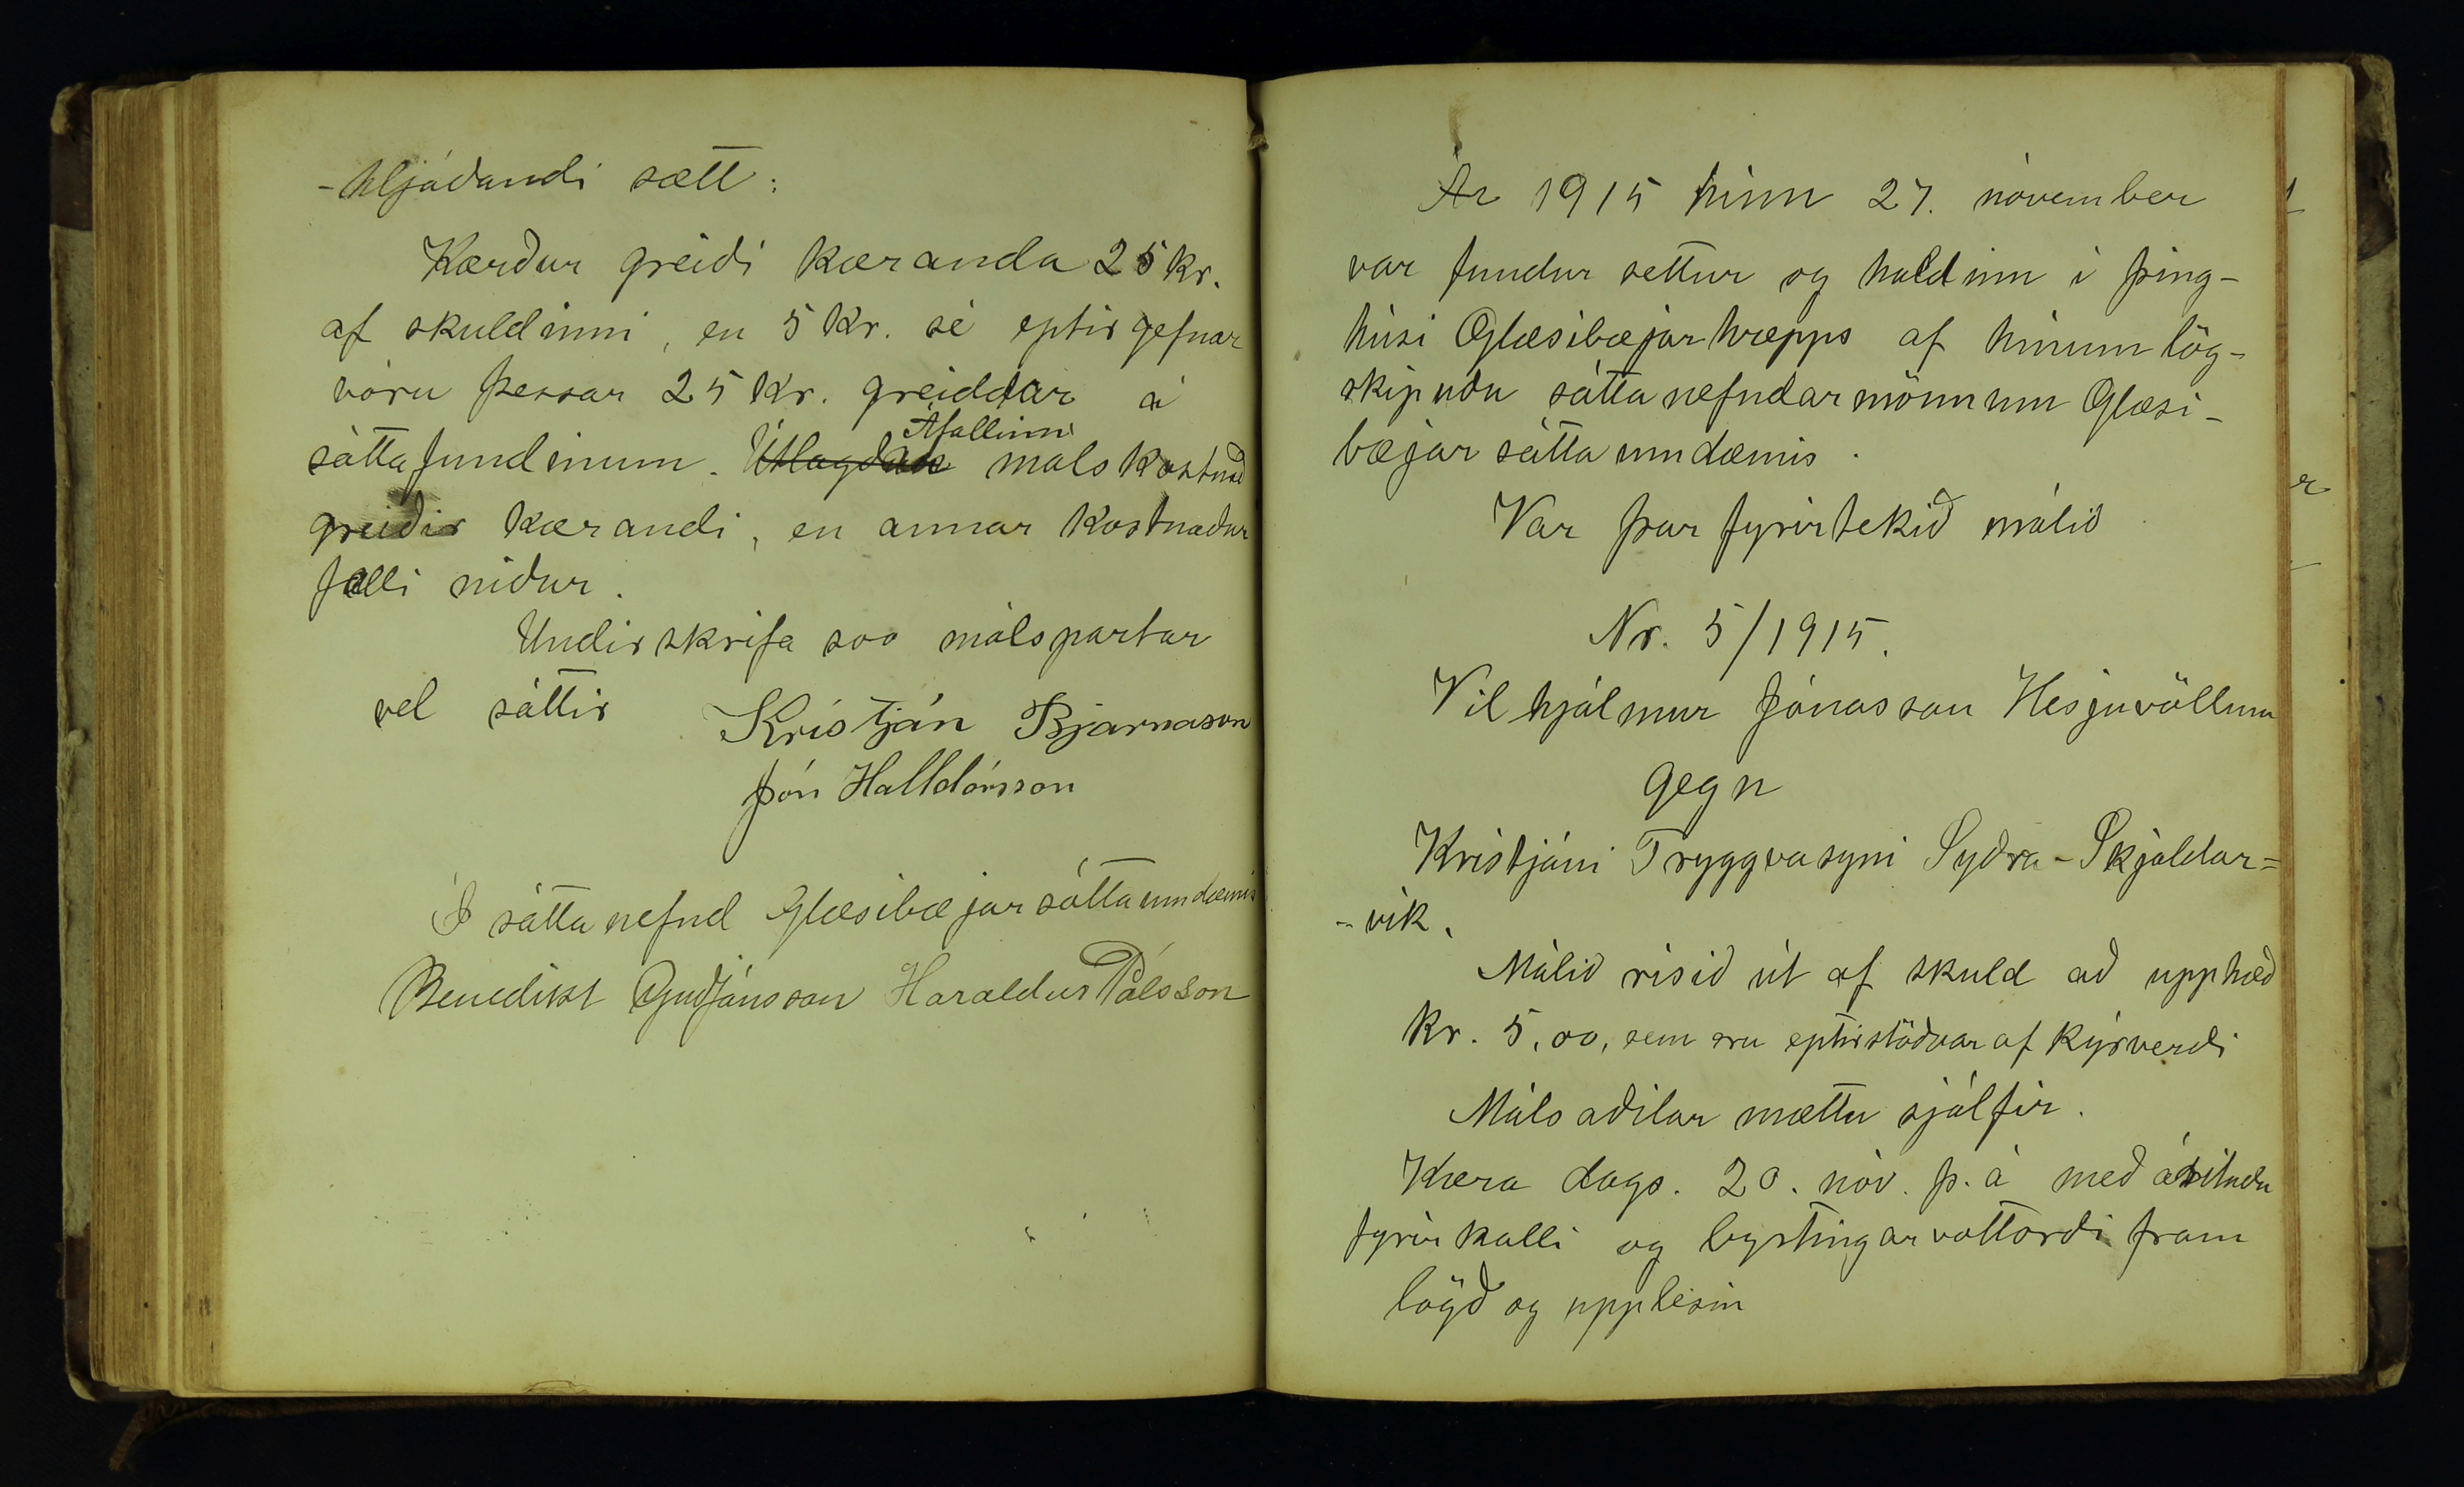 -hljóðandi sætt:
Kærður greiði kæranda 25 kr.
af skuldinni, en 5 kr. sé eptirgefnar
vóru þessar 25 kr. greiddar á
Áfallinn
sáttafundinum. málskostnað
greiðir kærandi, en annar kostnaður
falli niður.
Undirskrifa svo málspartar
vel sáttir Kristján Bjarnason
Jón Halldórsson
Í sáttanefnd Glæsibæjarsáttaumdæmis
Benedikt Guðjónsson Haraldur Pálsson
Ár 1915 hinn 27. nóvember
var fundur settur og haldinn í þing-
húsi Glæsibæjarhrepps af hinum lög-
skipuðu sáttanefndarmönnum Glæsi-
bæjar sáttaumdæmis.
Var þar fyrirtekið málið
Nr. 5/1915.
Vilhjálmur Jónasson Hesjuvöllum
gegn
Kristjáni Tryggvasyni Syðra-Skjaldar=
-vík.
Málið risið út af skuld að upphæð
kr. 5,00, sem eru eptirstöðvar af kýrverði
Málsaðilar mættu sjálfir.
Kæra dags. 20. nóv. þ. á með árituðu
fyrirkalli og byrtingarvottorði fram
lögð og upplesin